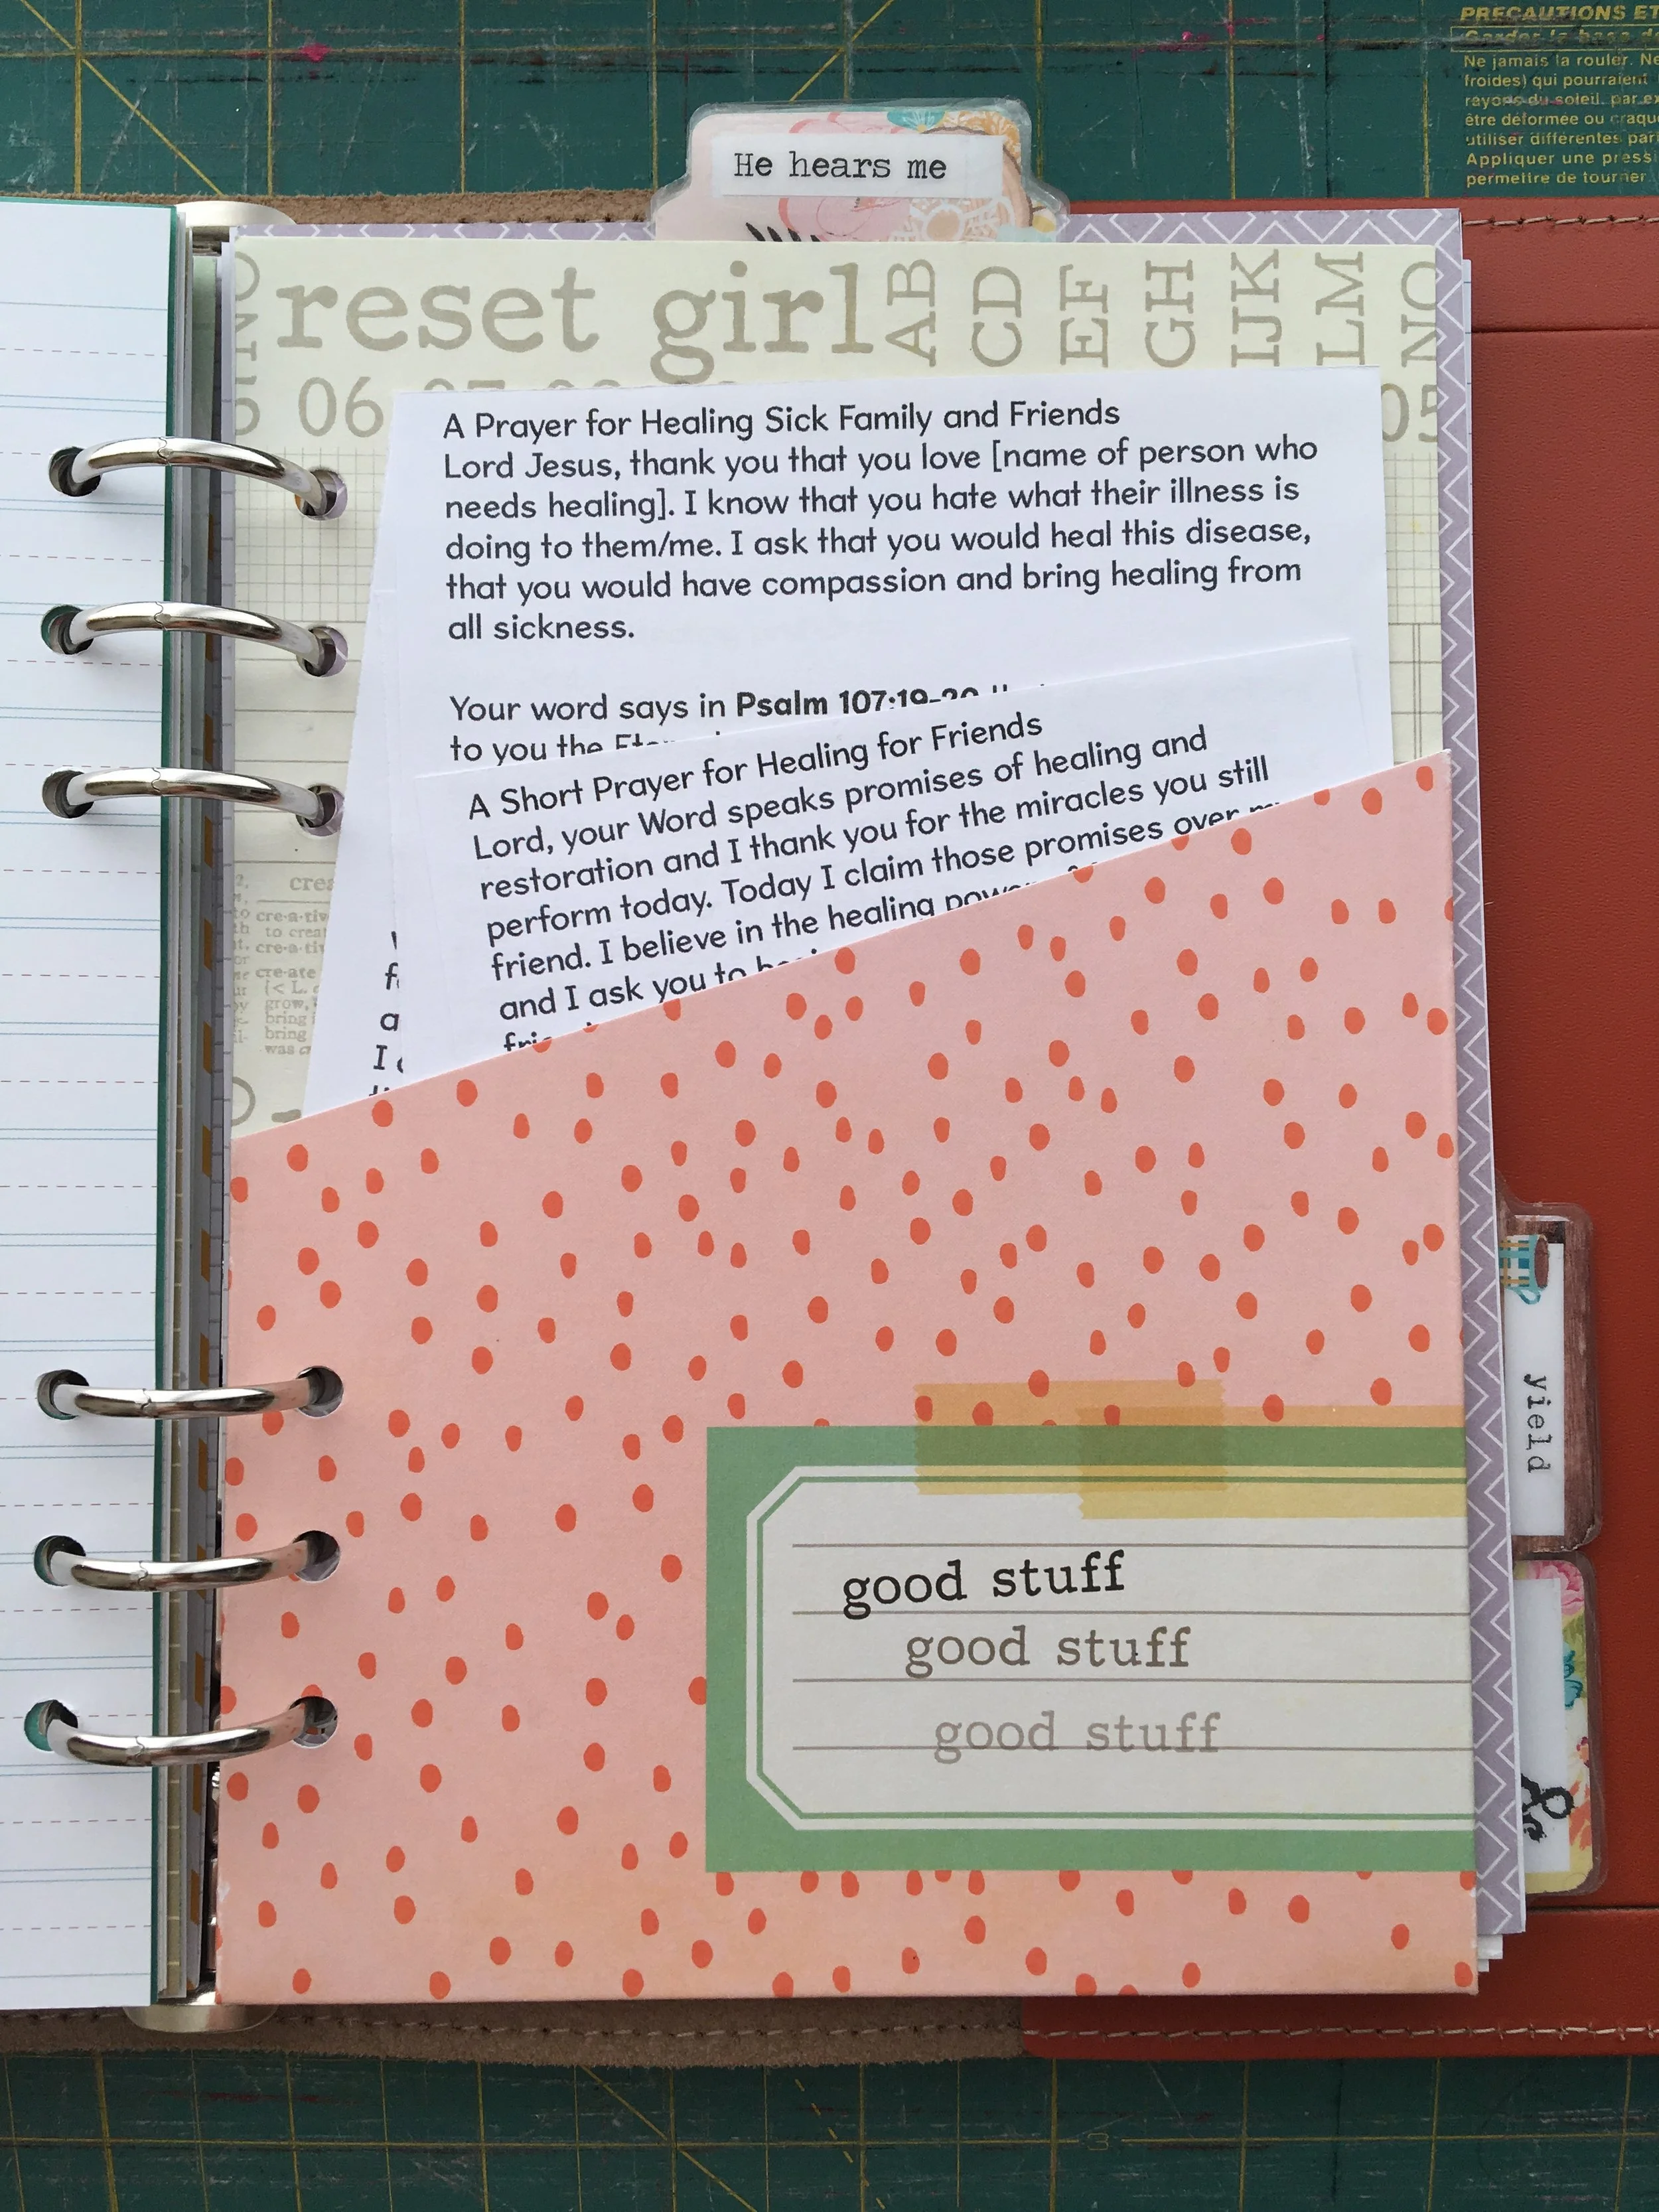 PRECAUTIONS ET
Ne jamais la rouler. Ne
froides) qui pourraient
rayons du soleil. par ex
être déformée ou craque
utiliser différentes par
Appliquer une press
permettre de tourner
He hears me
reset girl AB CD EF GH IJK LM NO
06 05
A Prayer for Healing Sick Family and Friends
Lord Jesus, thank you that you love [name of person who
needs healing]. I know that you hate what their illness is
doing to them/me. I ask that you would heal this disease,
that you would have compassion and bring healing from
all sickness.
Your word says in Psalm 107:19-20
to you the
A Short Prayer for Healing for Friends
Lord, your Word speaks promises of healing and
restoration and I thank you for the miracles you still
perform today. Today I claim those promises over
friend. I believe in the healing
and I ask you to
cre·a·tiv
to crea
cre·a·tiv
cre·ate
(< L.
grow,
bring
bring
was
f
a
I
yield
good stuff
good stuff
good stuff
&
3